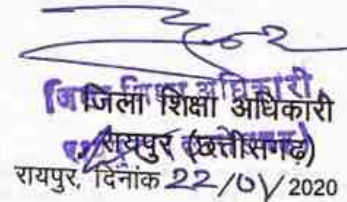 जिला शिक्षा अधिकारी
जिला शिक्षा अधिकारी
रायपुर (छत्तीसगढ़)
रायपुर, दिनांक 22/01/2020